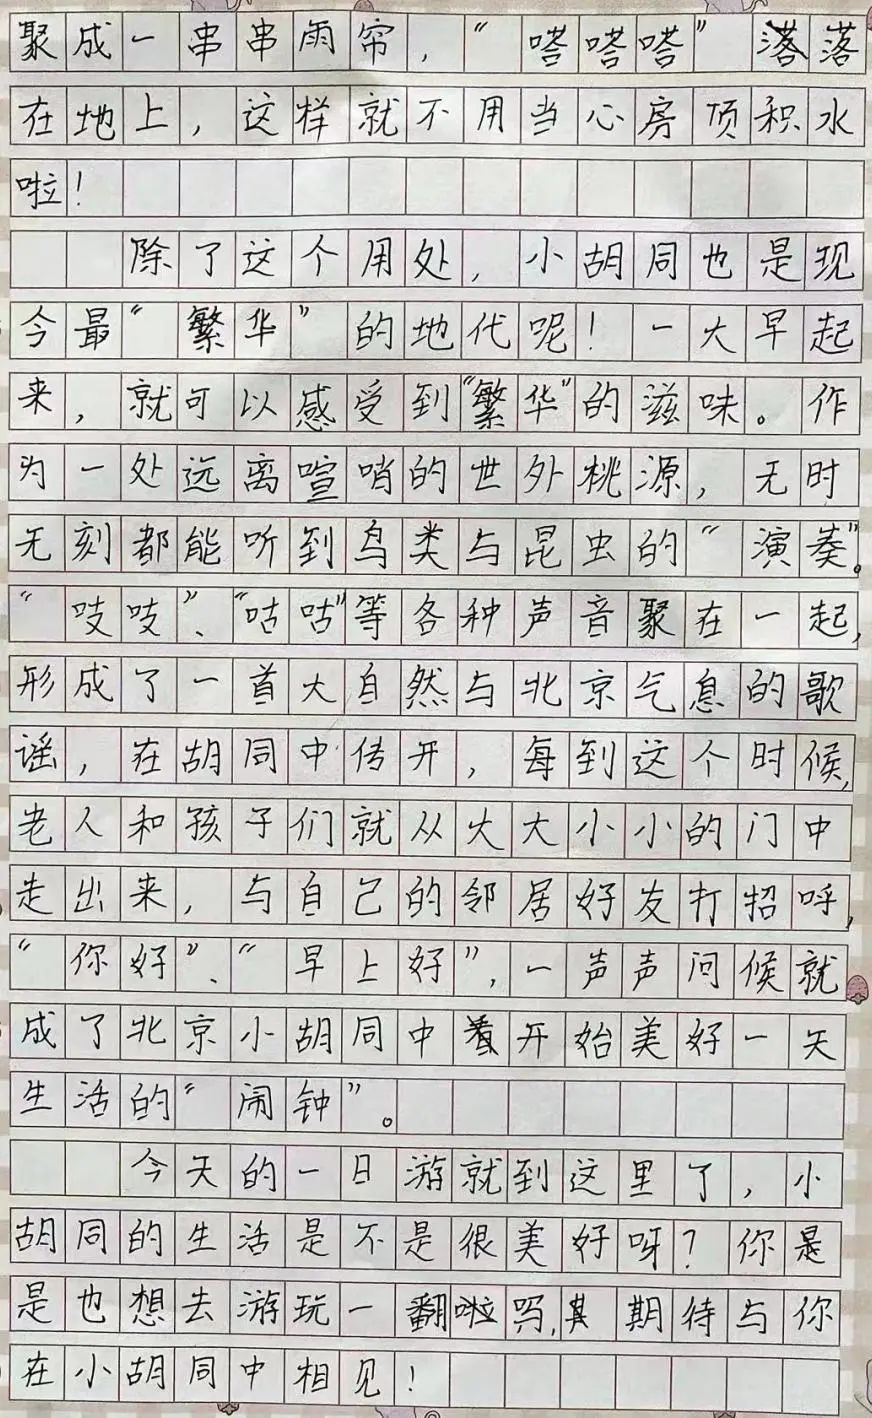 聚成一串串雨帘，“嗒嗒嗒”落
在地上，这样就不用当心房顶积水
啦！
除了这个用处，小胡同也是现
今最“繁华”的地代呢！一大早起
来，就可以感受到“繁华”的滋味。作
为一处远离喧哨的世外桃源，无时
无刻都能听到鸟类与昆虫的“演奏”。
“吱吱”、“咕咕”等各种声音聚在一起，
形成了一首大自然与北京气息的歌
谣，在胡同中传开，每到这个时候，
老人和孩子们就从大大小小的门中
走出来，与自己的邻居好友打招呼，
“你好”、“早上好”，一声声问候就
成了北京小胡同中着开始美好一天
生活的“闹钟”。
今天的一日游就到这里了，小
胡同的生活是不是很美好呀？你是
是也想去游玩一翻啦吗，其期待与你
在小胡同中相见！